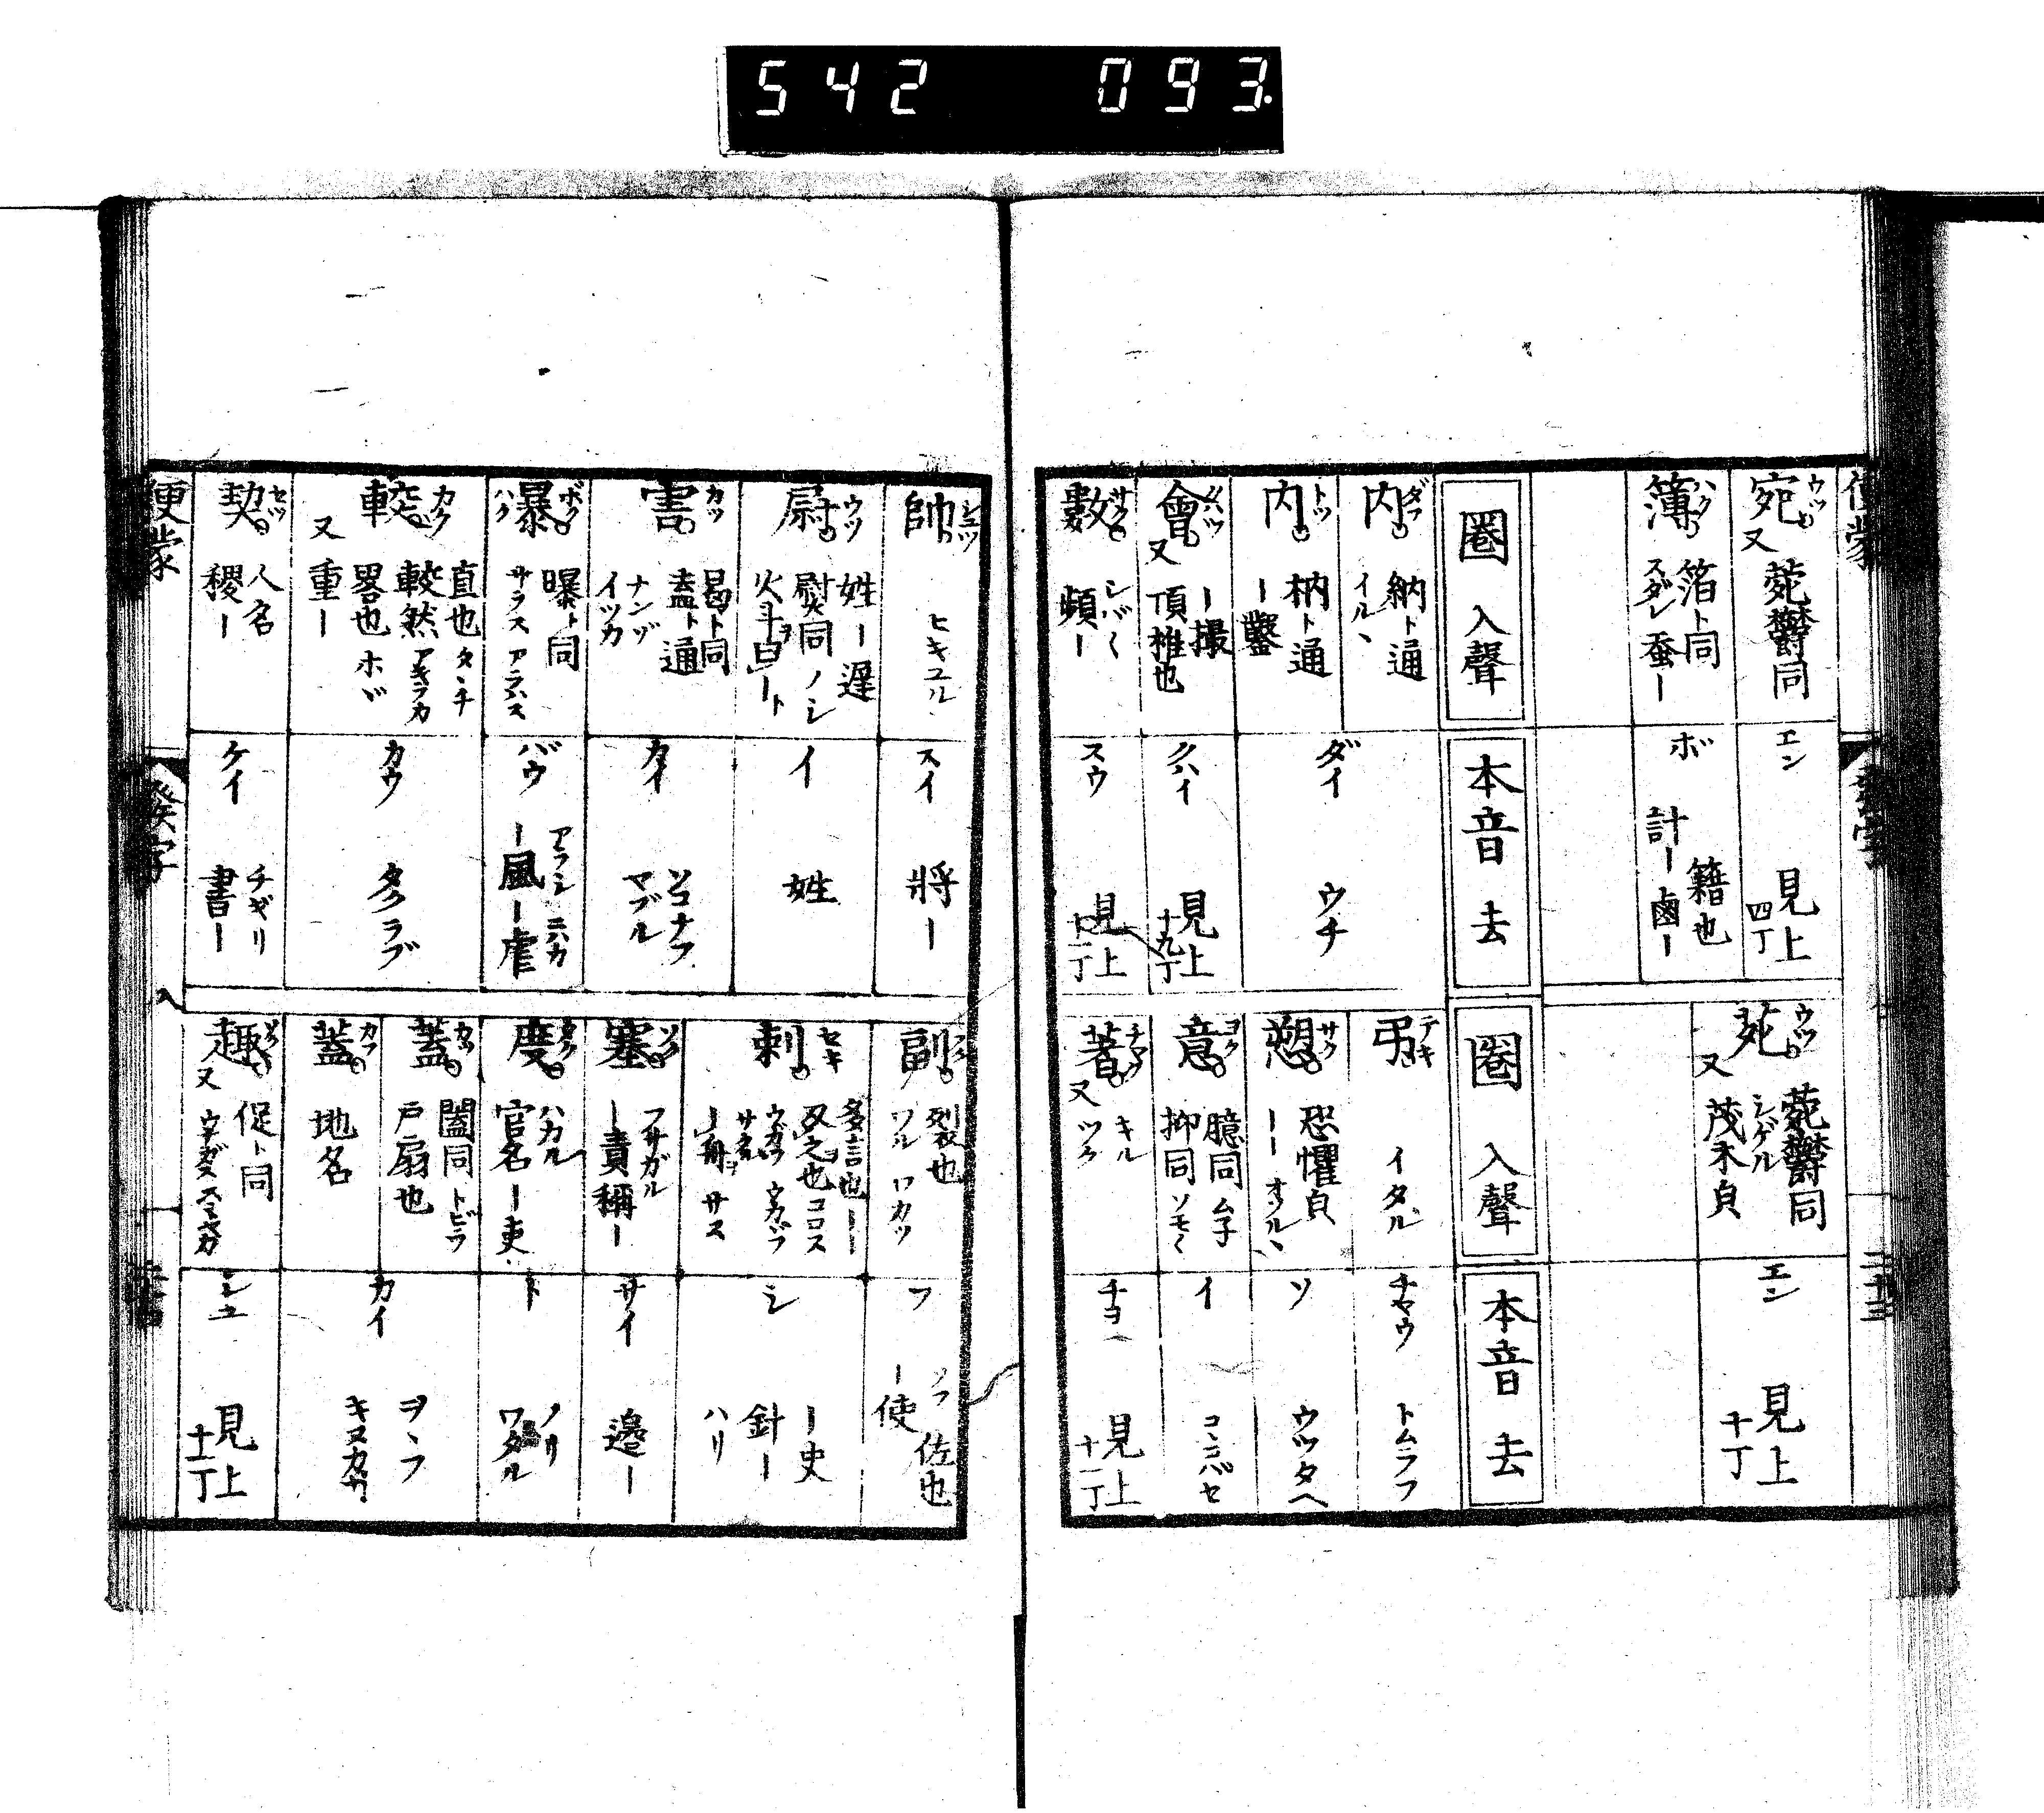 542 093.
便蒙
宛 ウツ 又 菀鬱同
エン 見上 四丁
簿 ハク 箔ト同 スダレ 蚕ー
ボ 籍也 計ー 鹵ー
圏 入聲
本音 去
内 ダフ 納ト通 イルヽ
内 トツ 枘ト通 ー鑿
ダイ ウチ
會 クハツ 又 ー撮 頂椎也
クハイ 見上 十九丁
數 サク シバ〱 頻ー
スウ 見上
菀 ウツ 又 菀鬱同 シゲル 茂木皃
エン 見上 十丁
圏 入聲
本音 去
弔 テキ イタル
チヤウ トムラフ
愬 サク 恐懼皃 ーー オソルヽ
ソ ウツタヘ
意 ヨク 臆同 ムネ 抑同 ソモ〱
イ コヽロバセ
著 チヤク キル 又 ツク
チヨ 見上 十一丁
二十三
帥 シユツ ヒキユル
スイ 將ー
尉 ウツ 姓ー遲 熨同 ノシ 火斗曰ート
イ 姓
害 カツ 曷ト同 盍ト通 ナンゾ イツカ
カイ ソコナフ マブル
暴 ボク ハク 曝ト同 サラス アラハス
バウ アラシ ニハカ ー風ー虐
較 カク 直也 タヽチ 較然 アキラカ 畧也 ホヾ 又 重ー
カウ タクラブ
契 セツ 人名 稷ー
ケイ チギリ 書ー
副 裂也 ワル ワカツ
フ ソフ 佐也 ー使
刺 セキ 多言也ーー 殺之也 コロス ウカヾフ サス ー舟ヲ サス
シ ー史 針ー ハリ
塞 ソク フサガル ー責 稱ー
サイ 邉ー
度 タク ハカル 官名ー吏
ト ノリ ワタル
蓋 カフ 闔同 トビラ 戸扇也
蓋 カフ 地名
カイ ヲヽフ キヌカサ
趣 ソク 又 促ト同 ウナガス スミヤカ
シユ 見上 十二丁
便蒙 發字